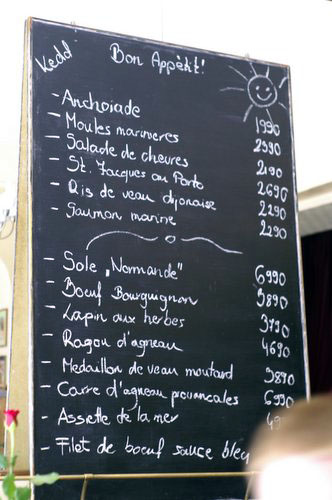 Kedd
Bon Appétit!
- Anchoiade 1990
- Moules marinieres 2990
- Salade de chevres 2190
- St. Jacques au Porto 2690
- Ris de veau dijonaise 2290
- Saumon marine 2290
- Sole „Normande" 6990
- Boeuf Bourguignon 3890
- Lapin aux herbes 3790
- Ragou d'agneau 4690
- Medaillon de veau moutard 3890
- Carre d'agneau provencales 6990
- Assiette de la mer
- Filet de boeuf sauce bleu